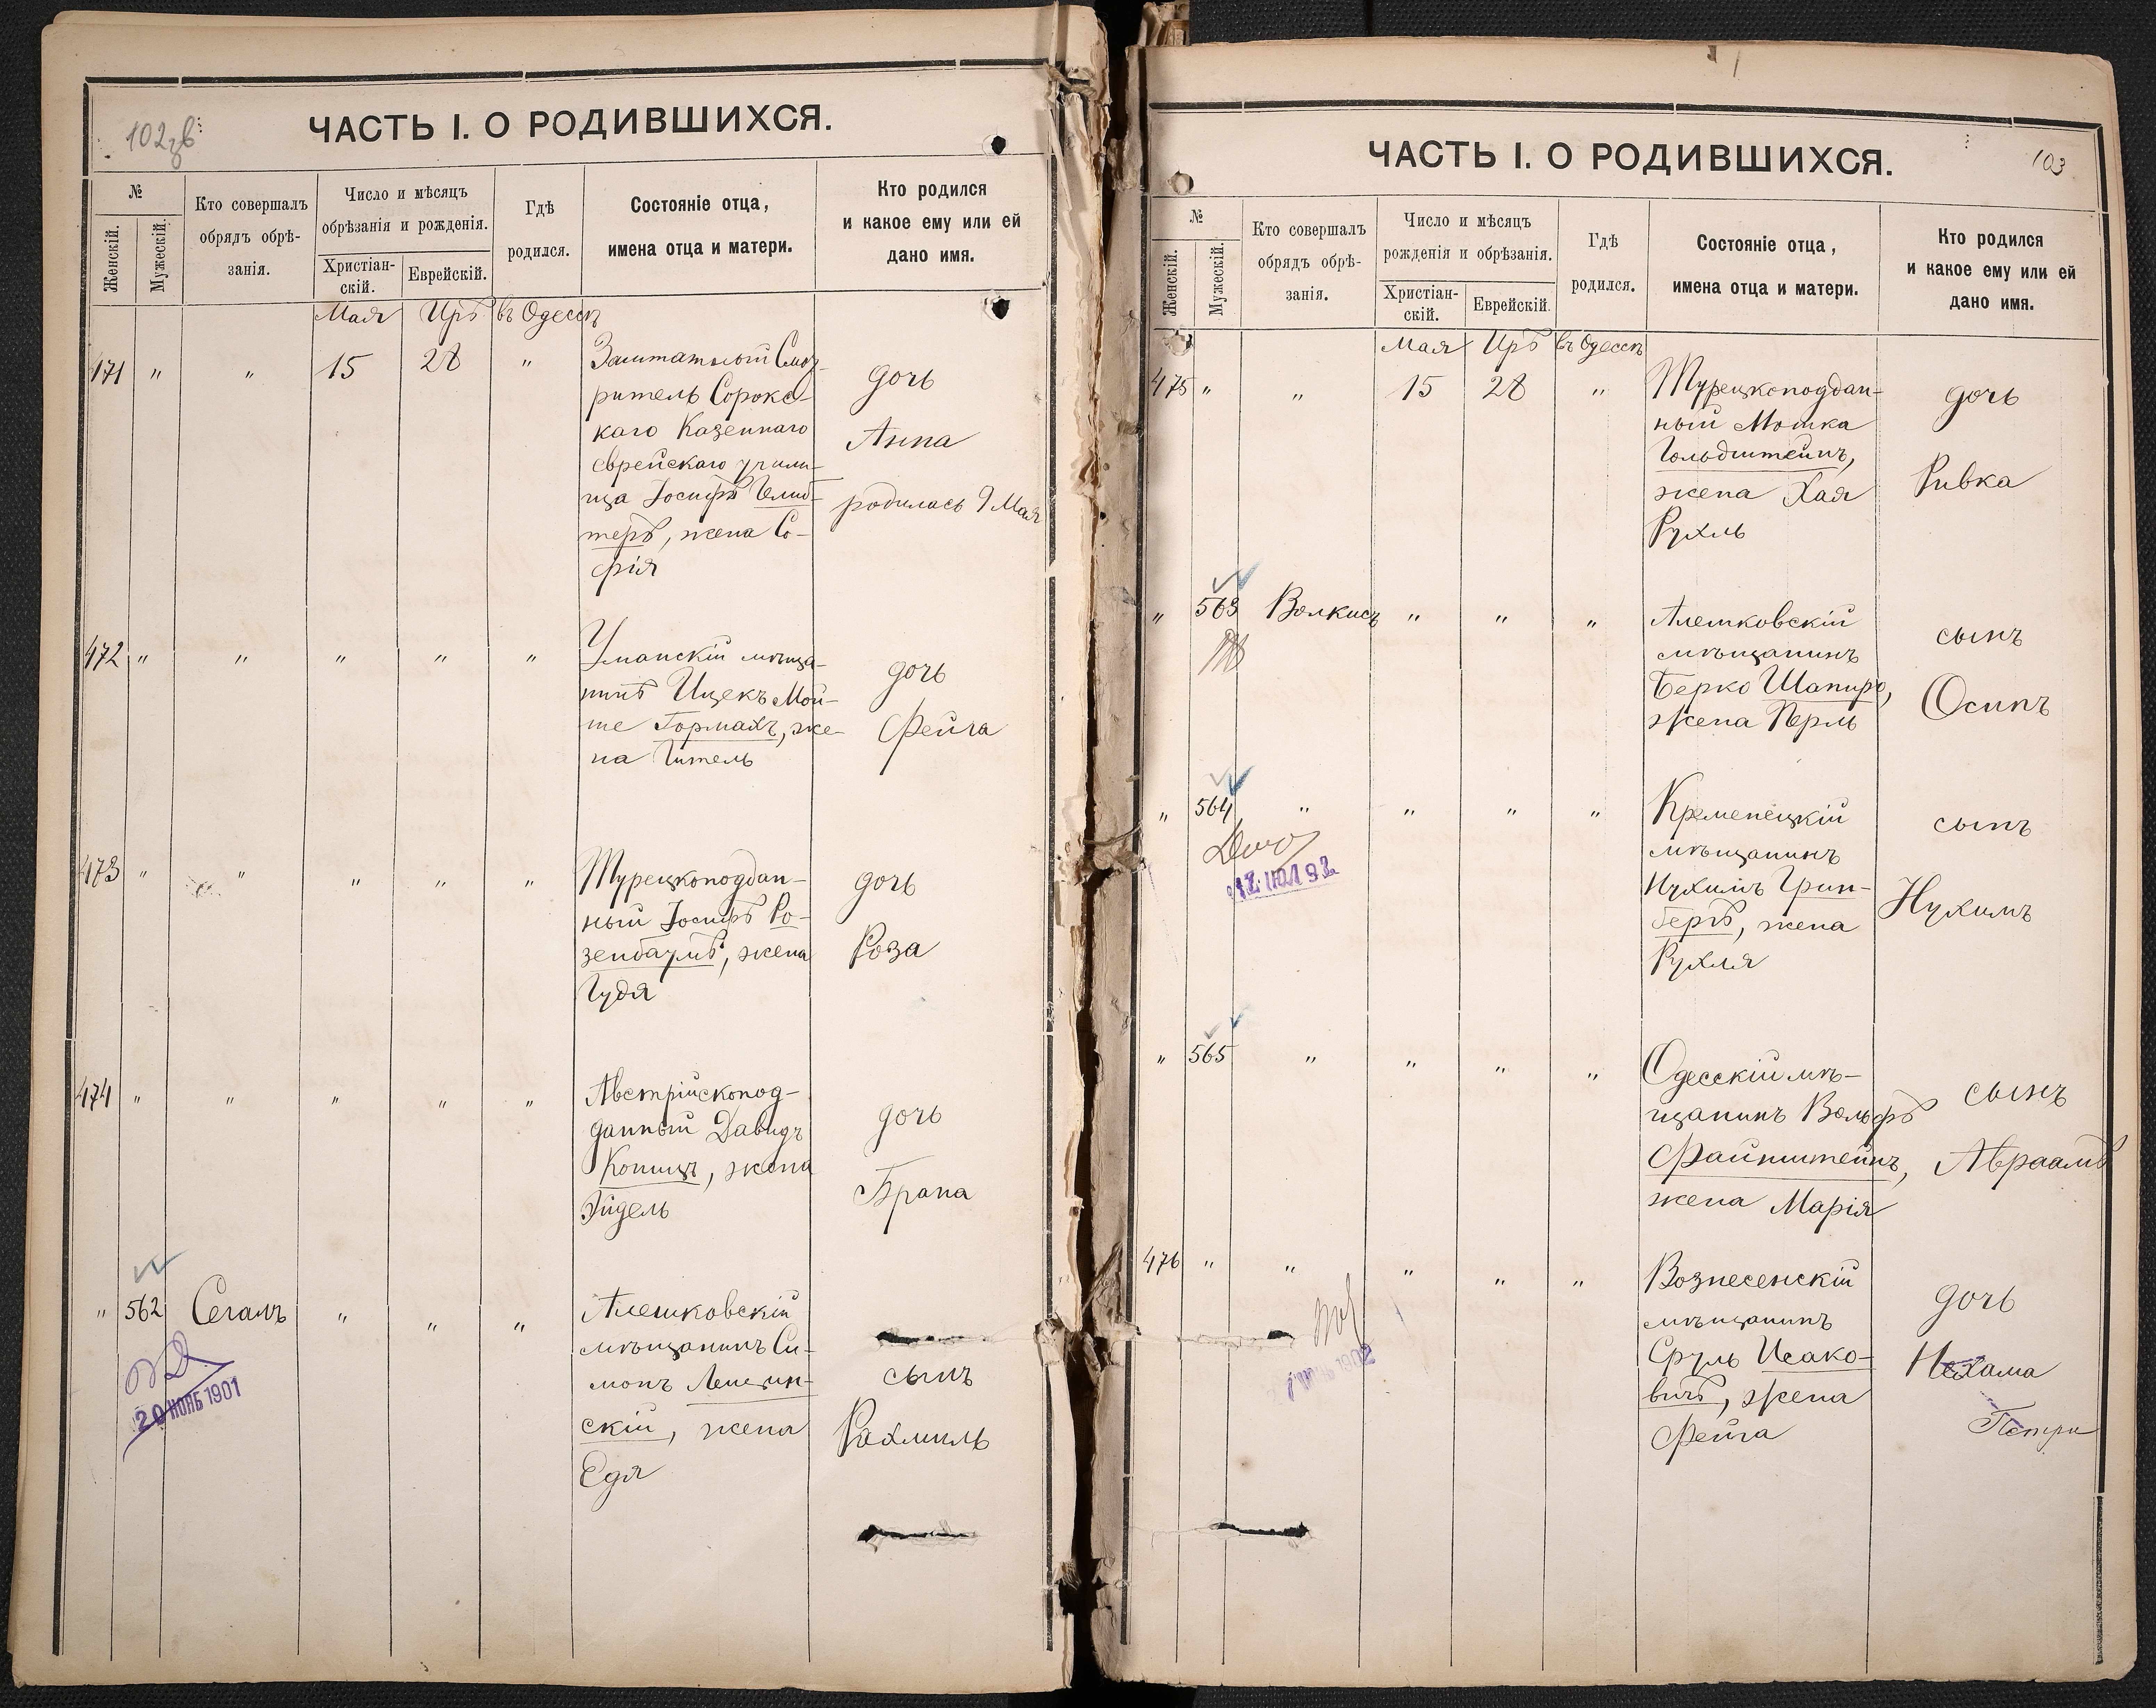 102 об
ЧАСТЬ I. О РОДИВШИХСЯ.
№
Женскій.
Мужескій.
Кто совершалъ
обрядъ обрѣ-
занія.
Число и мѣсяцъ
обрѣзанія и рожденія.
Христіан-
скій.
Еврейскій.
Гдѣ
родился.
Состояніе отца,
имена отца и матери.
Кто родился
и какое ему или ей
дано имя.
Мая Иръ въ Одессѣ
471 " " 15 28 " Заштатный Смо-
ритель Сорокс-
каго Казеннаго
еврейскаго учили-
ща Іосифъ
теръ, жена Со-
фія
дочь
Анна
родилась 9 Мая
472 " " " " " Уманскій мѣща-
нинъ Ицекъ Мой-
ше Гормахъ, же-
на Гитель
дочь
Фейга
473 " " " " " Турецкоподдан-
ный Іосифъ Ро-
зенбаумъ, жена
Гудя
дочь
Роза
474 " " " " " Австрійскопод-
данный Давидъ
Копицъ, жена
Эйдель
дочь
Брана
" 562 Сегалъ " " " Алешковскій
мѣщанинъ Си-
монъ
скій, жена
Едя
сынъ
Рахмиль
20 НОЯБ 1901
103
ЧАСТЬ I. О РОДИВШИХСЯ.
№
Женскій.
Мужескій.
Кто совершалъ
обрядъ обрѣ-
занія.
Число и мѣсяцъ
рожденія и обрѣзанія.
Христіан-
скій.
Еврейскій.
Гдѣ
родился.
Состояніе отца,
имена отца и матери.
Кто родился
и какое ему или ей
дано имя.
Мая Иръ въ Одессѣ
475 " " 15 28 " Турецкоподдан-
ный Мошка
Гольдштейнъ,
жена Хая
Рухль
дочь
Ривка
" 563 Волкисъ " " " Алешковскій
мѣщанинъ
Берко Шапиро,
жена Перль
сынъ
Осипъ
" 564 " " " " Кременецкій
мѣщанинъ
Нухимъ Грин-
бергъ, жена
Рухля
сынъ
Нухимъ
12 ИЮЛ 92
" 565 " " " " Одесскій мѣ-
щанинъ Вольфъ
Файнштейнъ,
жена Марія
сынъ
Авраамъ
476 " " " " " Вознесенскій
мѣщанинъ
Сруль Исако-
вичъ, жена
Фейга
дочь
Нехама